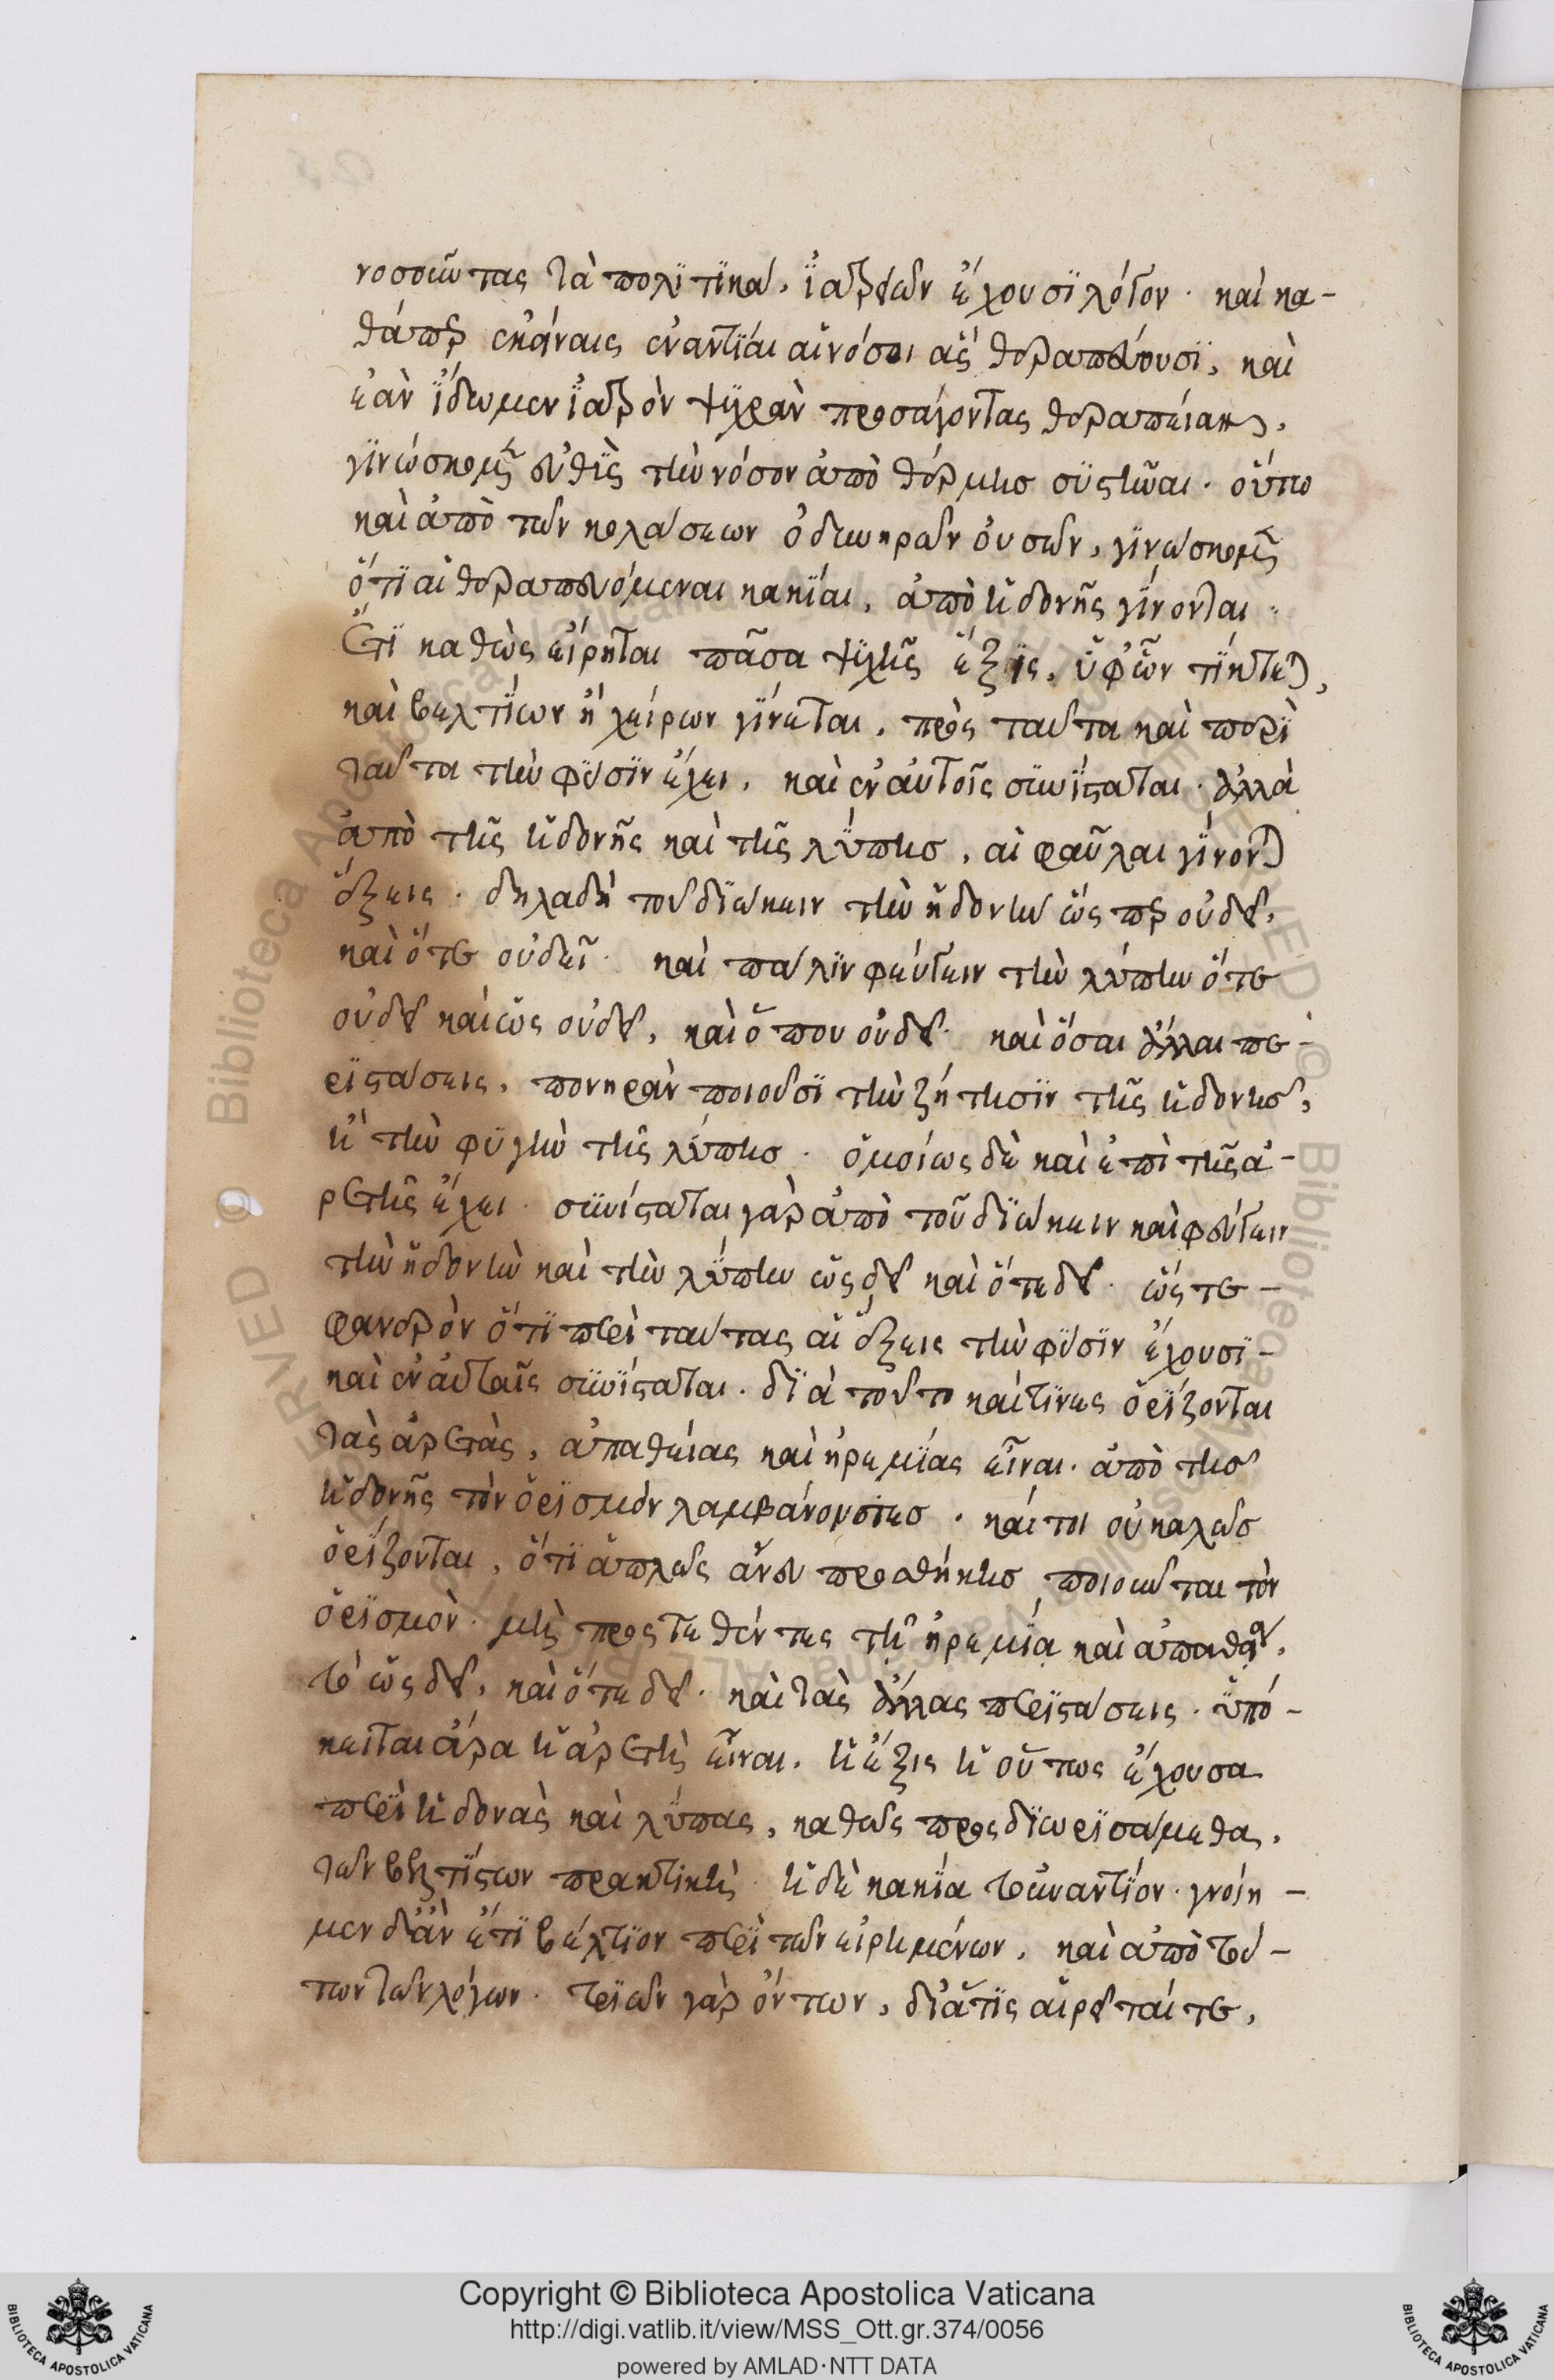 νοσοῦντας τὰ πολιτικά, ἰατρῶν ἔχουσι λόγον· καὶ κα-
θάπερ ἐκείναις ἐναντίαι αἱ νόσοι ἃς θεραπεύουσι, καὶ
ἐὰν ἴδωμεν ἰατρὸν ψυχρὰν προσάγοντας θεραπείαν,
γινώσκομεν εὐθὺς τὴν νόσον ἀπὸ θέρμης συστῆναι· οὕτω
καὶ ἀπὸ τῶν κολάσεων ὀδυνηρῶν οὐσῶν, γινώσκομεν
ὅτι αἱ θεραπευόμεναι κακίαι, ἀπὸ ἡδονῆς γίνονται·
ἔτι καθὼς εἴρηται πᾶσα ψυχῆς ἕξις, ὑφ' ὧν τίκτεται,
καὶ βελτίων ἢ χείρων γίνεται, πρὸς ταῦτα καὶ περὶ
ταῦτα τὴν φύσιν ἔχει, καὶ ἐν αὐτοῖς συνίσταται· ἀλλὰ
ἀπὸ τῆς ἡδονῆς καὶ τῆς λύπης, αἱ φαῦλαι γίνονται
ἕξεις· δηλαδὴ τοῦ διώκειν τὴν ἡδονὴν ὥσπερ οὐ δεῖ,
καὶ ὅτε οὐ δεῖ· καὶ πάλιν φεύγειν τὴν λύπην ὅτε
οὐ δεῖ καὶ ὡς οὐ δεῖ, καὶ ὅπου οὐ δεῖ· καὶ ὅσαι ἄλλαι πε-
ριστάσεις, πονηρὰν ποιοῦσι τὴν ζήτησιν τῆς ἡδονῆς,
ἢ τὴν φυγὴν τῆς λύπης· ὁμοίως δὲ καὶ ἐπὶ τῆς ἀ-
ρετῆς ἔχει· συνίσταται γὰρ ἀπὸ τοῦ διώκειν καὶ φεύγειν
τὴν ἡδονὴν καὶ τὴν λύπην ὡς δεῖ καὶ ὅτε δεῖ· ὥστε-
φανερὸν ὅτι περὶ ταύτας αἱ ἕξεις τὴν φύσιν ἔχουσι-
καὶ ἐν αὐταῖς συνίσταται· διὰ τοῦτο καί τινες ὁρίζονται
τὰς ἀρετὰς, ἀπαθείας καὶ ἠρεμίας εἶναι· ἀπὸ τῆς
ἡδονῆς τὸν ὁρισμὸν λαμβάνοντες· καίτοι οὐ καλῶς
ὁρίζονται, ὅτι ἁπλῶς ἄνευ προσθήκης ποιοῦνται τὸν
ὁρισμὸν· μὴ προστεθέντες τῇ ἠρεμίᾳ καὶ ἀπαθείᾳ,
τὸ ὡς δεῖ, καὶ ὅτε δεῖ· καὶ τὰς ἄλλας περιστάσεις· ὑπό-
κειται ἄρα ἡ ἀρετὴ εἶναι, ἡ ἕξις ἡ οὕτως ἔχουσα
περὶ ἡδονὰς καὶ λύπας, καθὼς προσδιωρισάμεθα,
τῶν βελτίστων πρακτικὴ· ἡ δὲ κακία τὸ ἐναντίον· γνοίη-
μεν δ' ἂν ἔτι βέλτιον περὶ τῶν εἰρημένων, καὶ ἀπὸ τού-
των τῶν λόγων· τριῶν γὰρ ὄντων, δι' ἅ τις αἱρεῖταί τε,
Copyright © Biblioteca Apostolica Vaticana
http://digi.vatlib.it/view/MSS_Ott.gr.374/0056
powered by AMLAD·NTT DATA